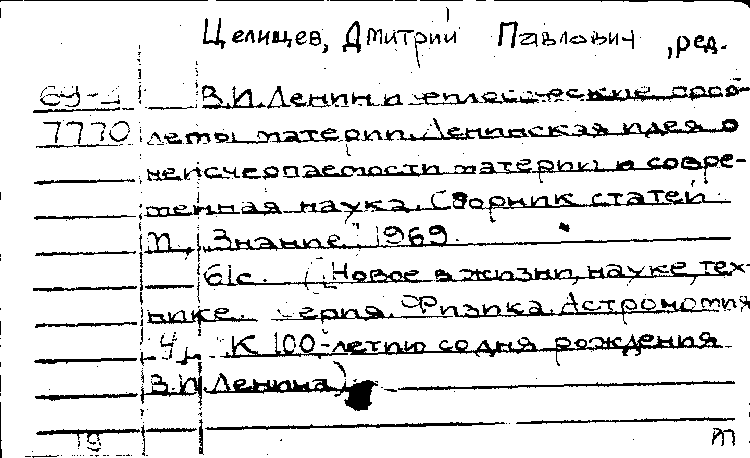 Целищев, Дмитрий Павлович, ред.
69-4 В.И.Ленин и философские проб-
7770 лемы материи. Ленинская идея о
неисчерпаемости материи и совре-
менная наука. Сборник статей
М., "Знание", 1969.
61с. (Новое в жизни, науке, тех-
нике. Серия. Физика. Астрономия
4). К 100-летию со дня рождения
В.И.Ленина)
19 М